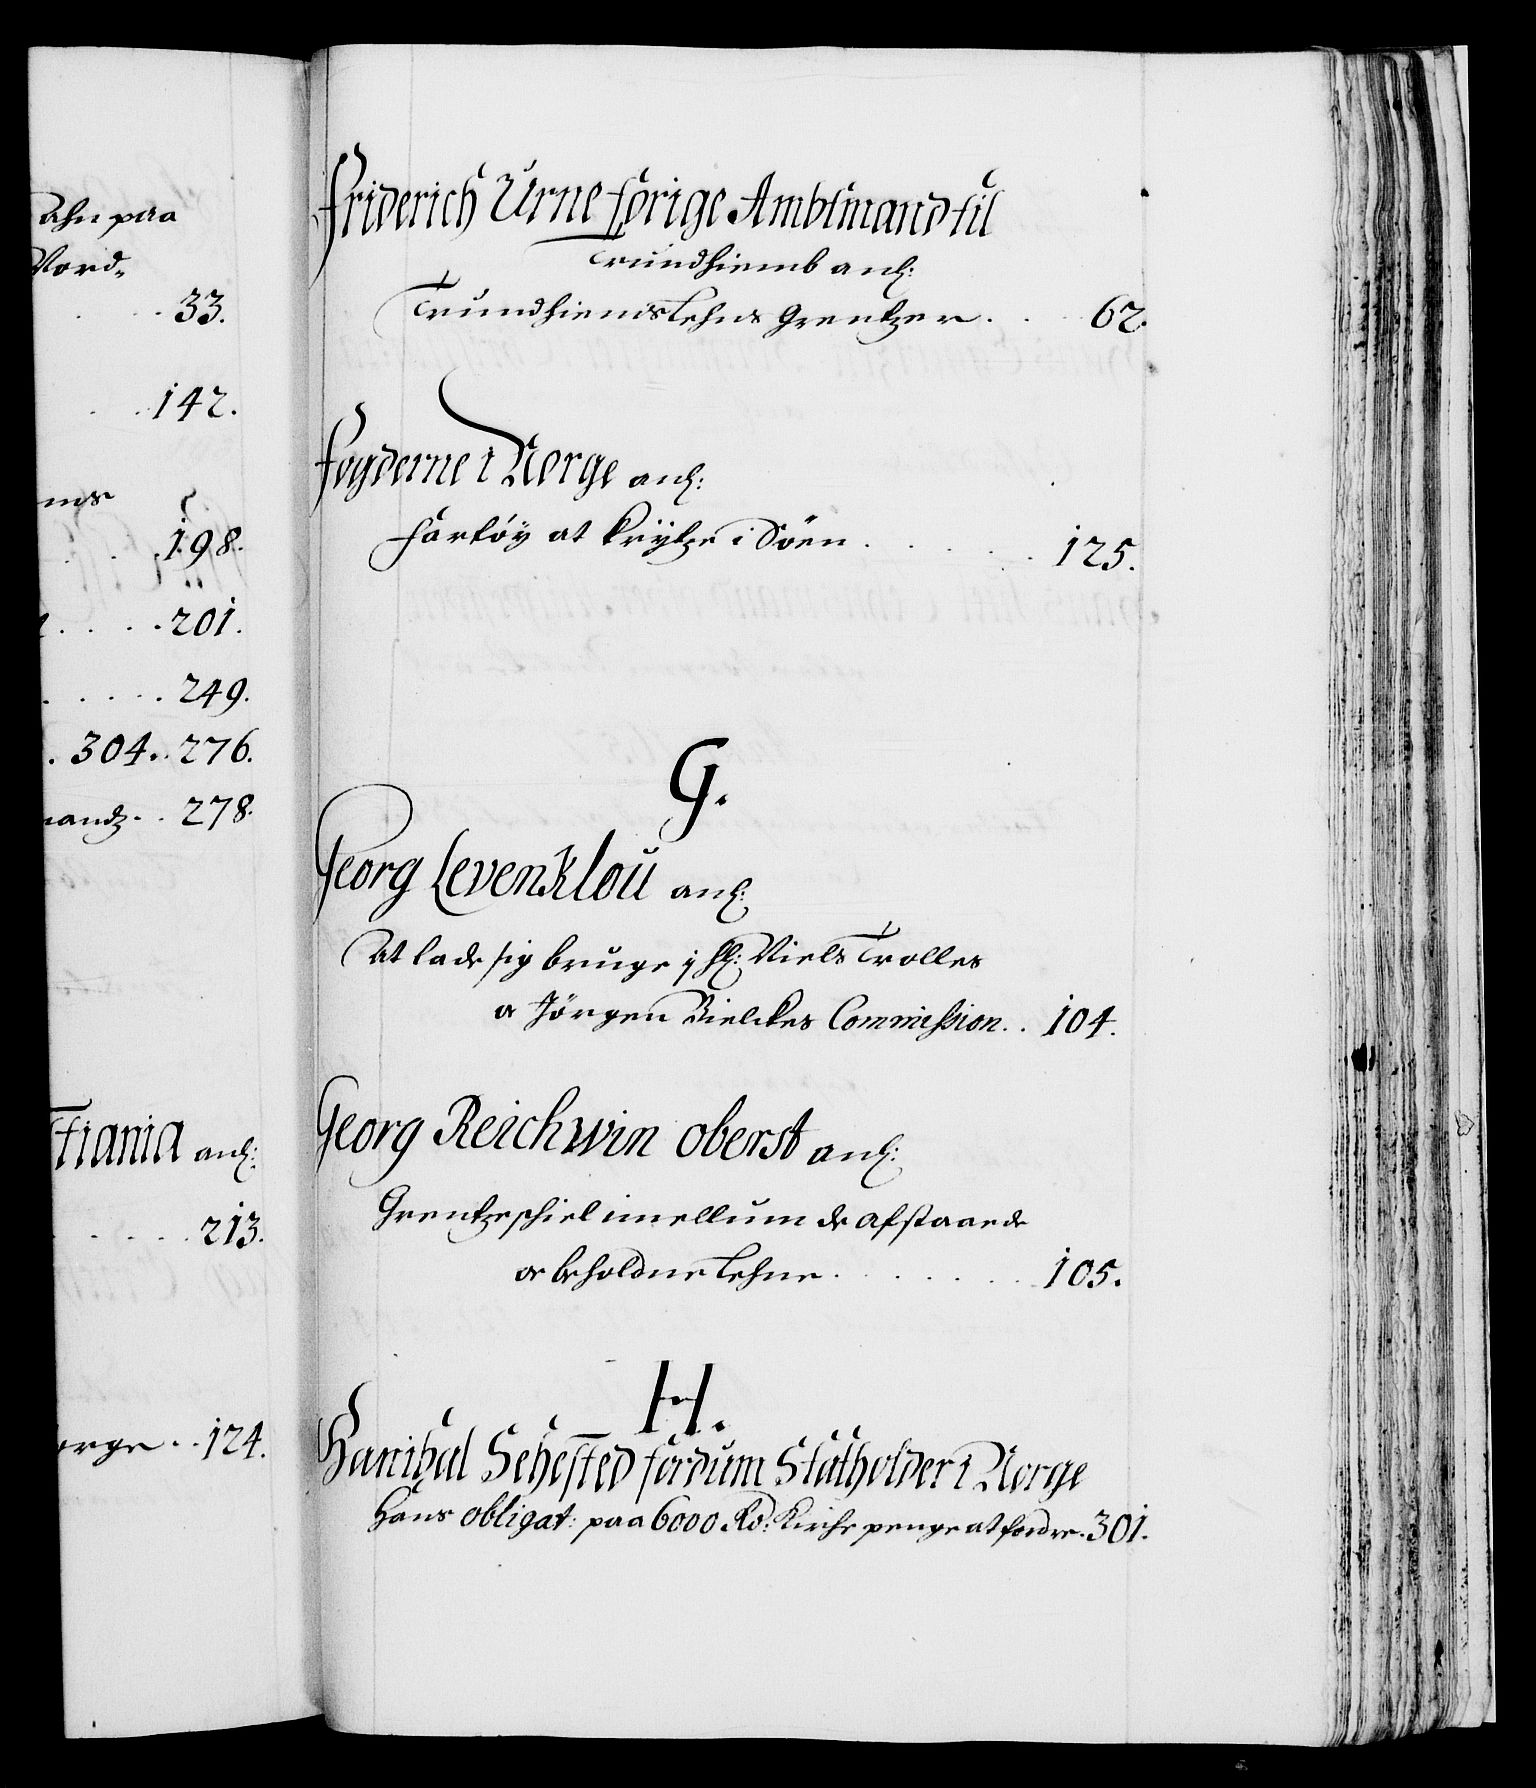 ahn paa
Nord-
33.
142.
ms
198.
201.
249.
304. 276.
mandz. 278.
stiania anl:
213.
orge. 124.
Friderich Urne forige Ambtmand til
Trundhiemb anl:
Trundhiems Lehns Grentzer. 62.
Fogderne i Norge anl:
Fartöy at krytze i Söen. 125.
G.
Georg Levenklou anl:
At lade sig bruge j Hl: Niels Trolles
oc Jörgen Bielckes Commission. 104.
Georg Reichwin oberst anl:
Grentzeschiel imellum de afstaaede
oc beholdne Lehne. 105.
H.
Hanibal Sehested fordum Statholder i Norge
Hans obligat: paa 6000 Rd: Kirche penge at fordre. 301.